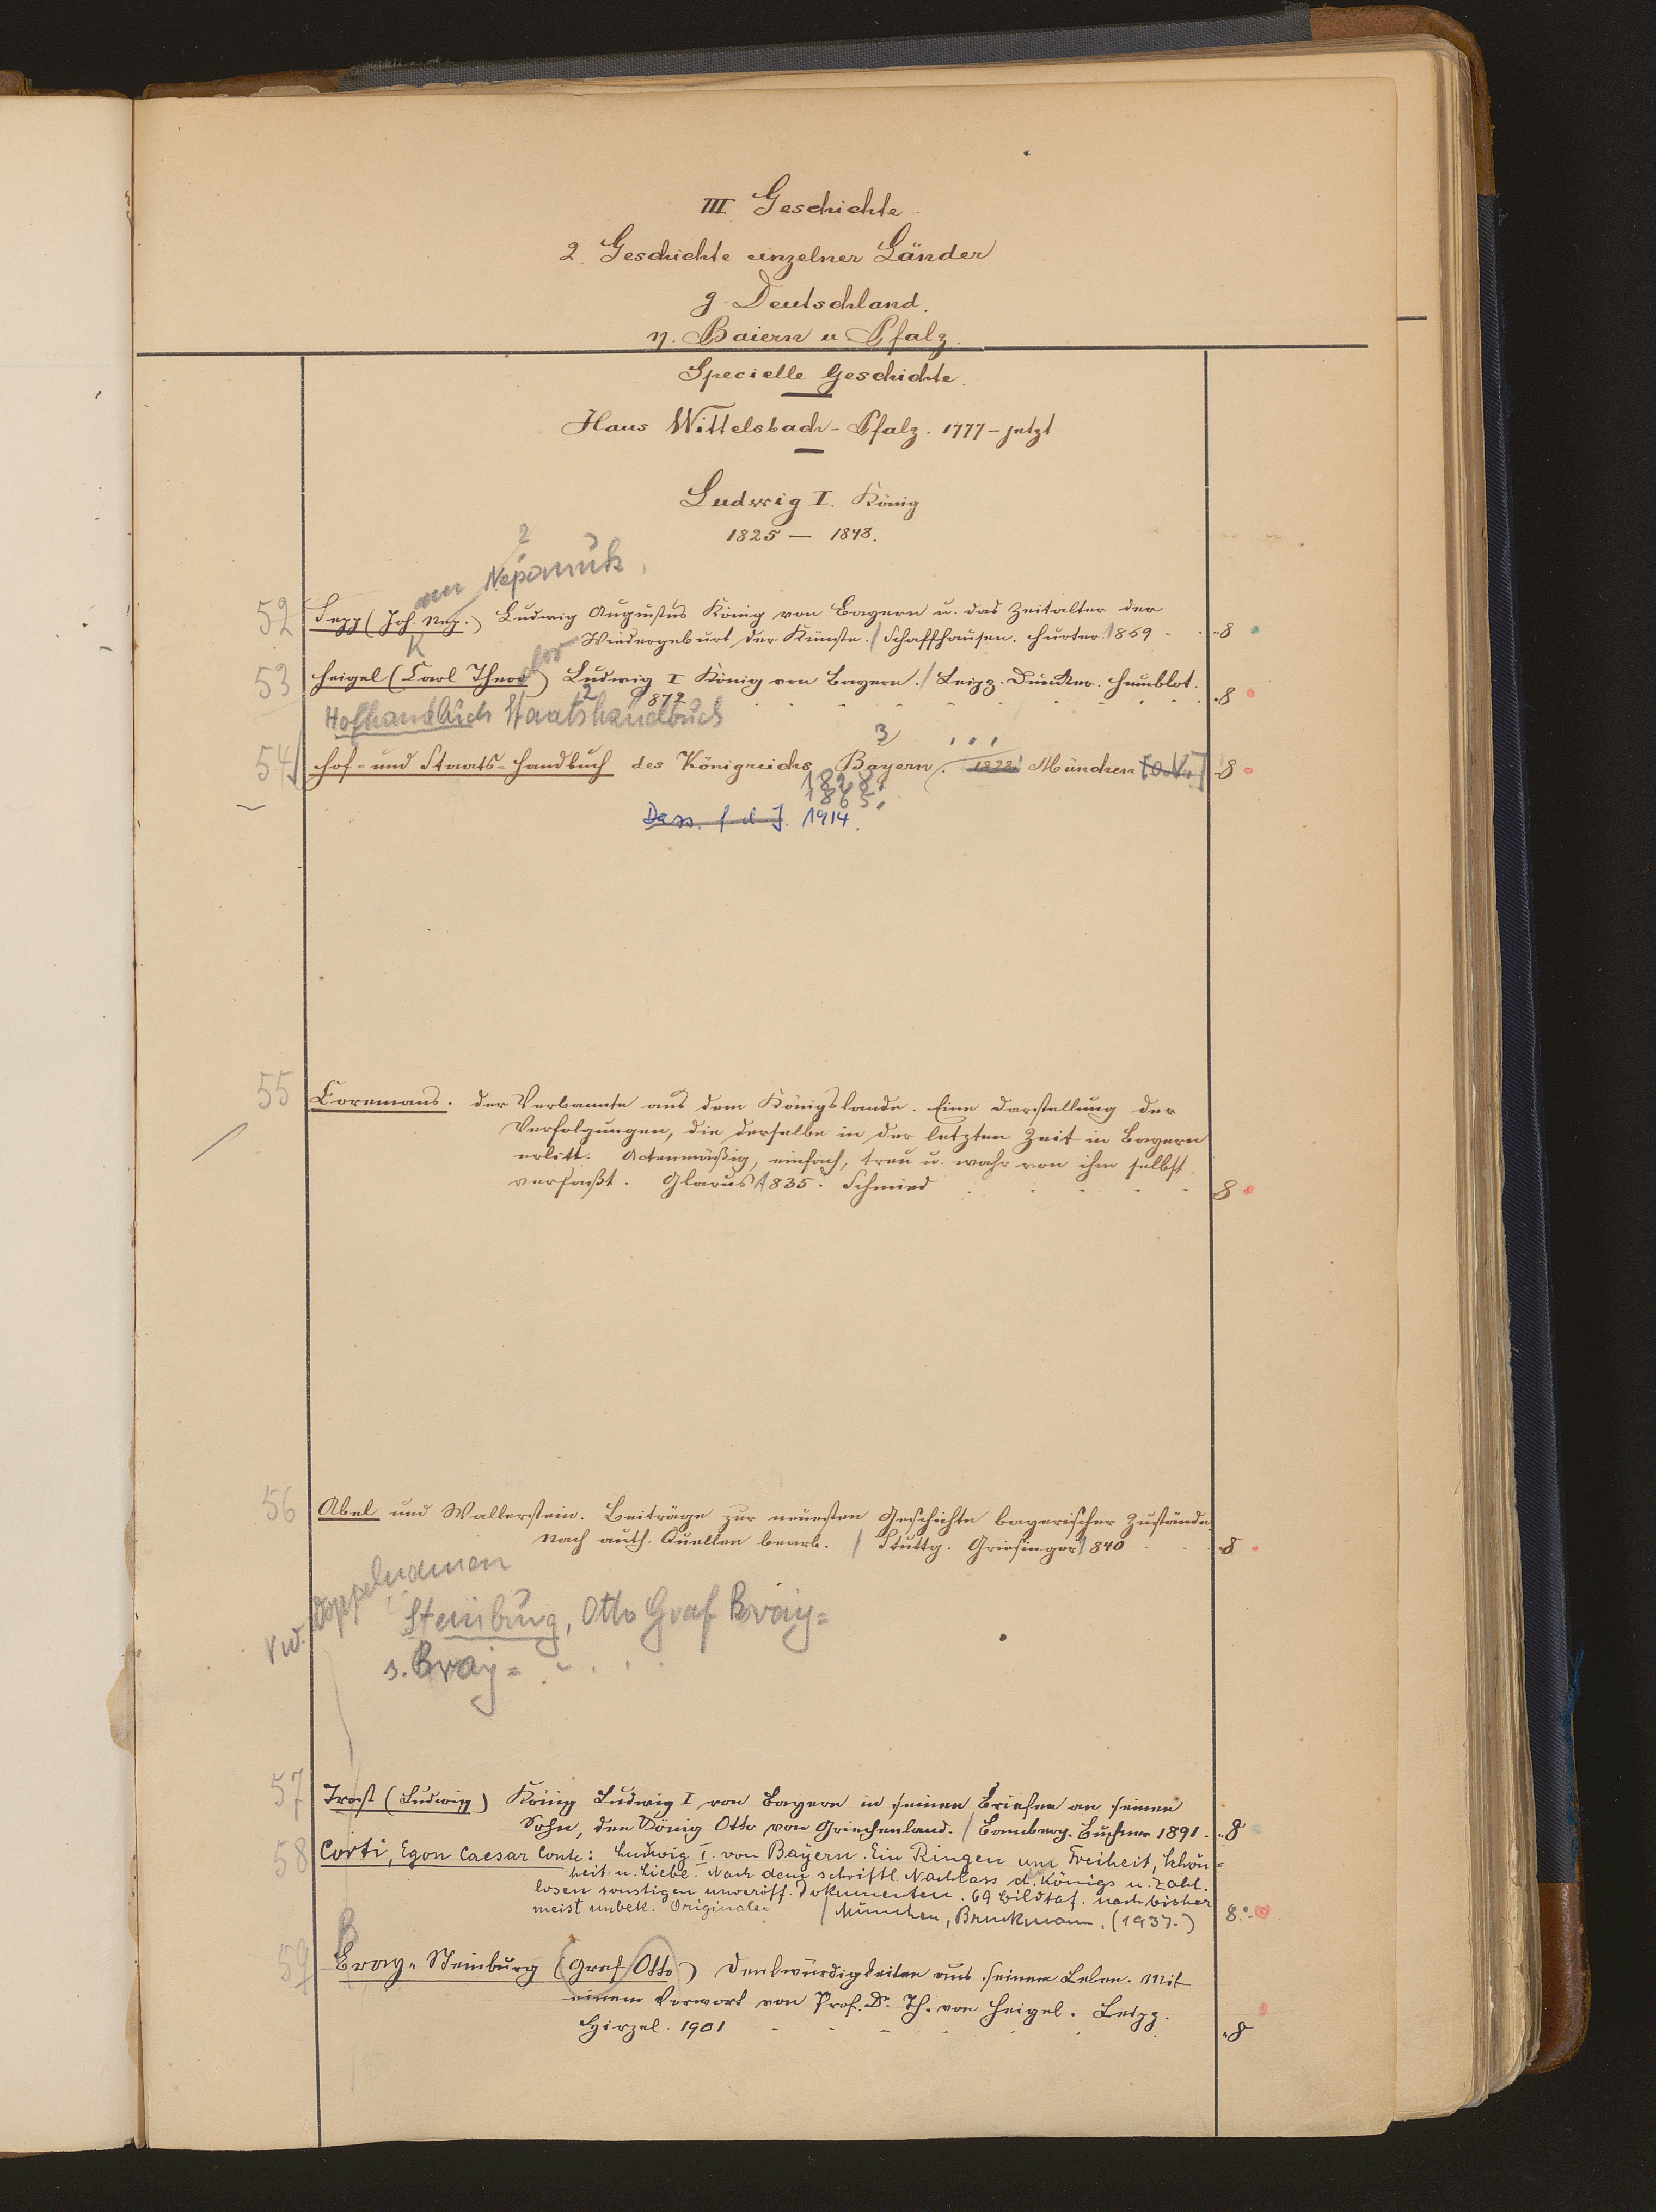 III Geschichte.
2. Geschichte einzelner Länder
g. Deutschland.
η. Baiern u Pfalz.
Specielle Geschichte.
Haus Wittelsbach-Pfalz. 1777-jetzt
Ludwig I. König
1825 — 1848.
2
Nepomuk
52 Sepp (Joh. Nep.) Ludwig Augustus König von Bayern u. das Zeitalter der
Wiedergeburt der Künste. / Schaffhausen. Hurter. 1869 - 8
K
53 Heigel (Carl Theod) dor Ludwig I König von Bayern. / Leipz. Duncker. Humblot.
1872 8
Hofhandbuch Staatshandbuch
2 3
54 Hof- und Staats-Handbuch des Königreichs Bayern. 1828 München [o. V.] 8
1828.
1865.
Dass. f. d. J. 1914.
55 Coremans. Der Verbannte aus dem Königslande. Eine Darstellung der
Verfolgungen, die derselbe in der letzten Zeit in Bayern
erlitt. Actenmäßig, einfach, treu u. wahr von ihm selbst
verfaßt. Glarus 1835. Schmied 8
56 Abel und Wallerstein. Beiträge zur neuesten Geschichte bayerischer Zustände.
Nach auth. Quellen bearb. / Stuttg. Griesinger 1840 8
vw. Doppelnamen
Steinburg, Otto Graf Bray=
s. Bray= . . .
57 Trost (Ludwig) König Ludwig I von Bayern in seinen Briefen an seinen
Sohn, den König Otto von Griechenland. / Bamberg. Buchner 1891. 8
58 Corti, Egon Caesar Conte: Ludwig I. von Bayern. Ein Ringen um Freiheit, Schön=
heit u. Liebe. Nach dem schriftl. Nachlass d. Königs u. zahl.
losen sonstigen unveröff. Dokumenten. 69 Bildtaf. nach bisher
meist unbek. Originalen / München, Bruckmann, (1937.) 8°
B
59 Bray-Steinburg (Graf Otto) Denkwürdigkeiten aus seinem Leben. Mit
einem Vorwort von Prof. Dr. Th. von Heigel. Leipz.
Hirzel. 1901 8